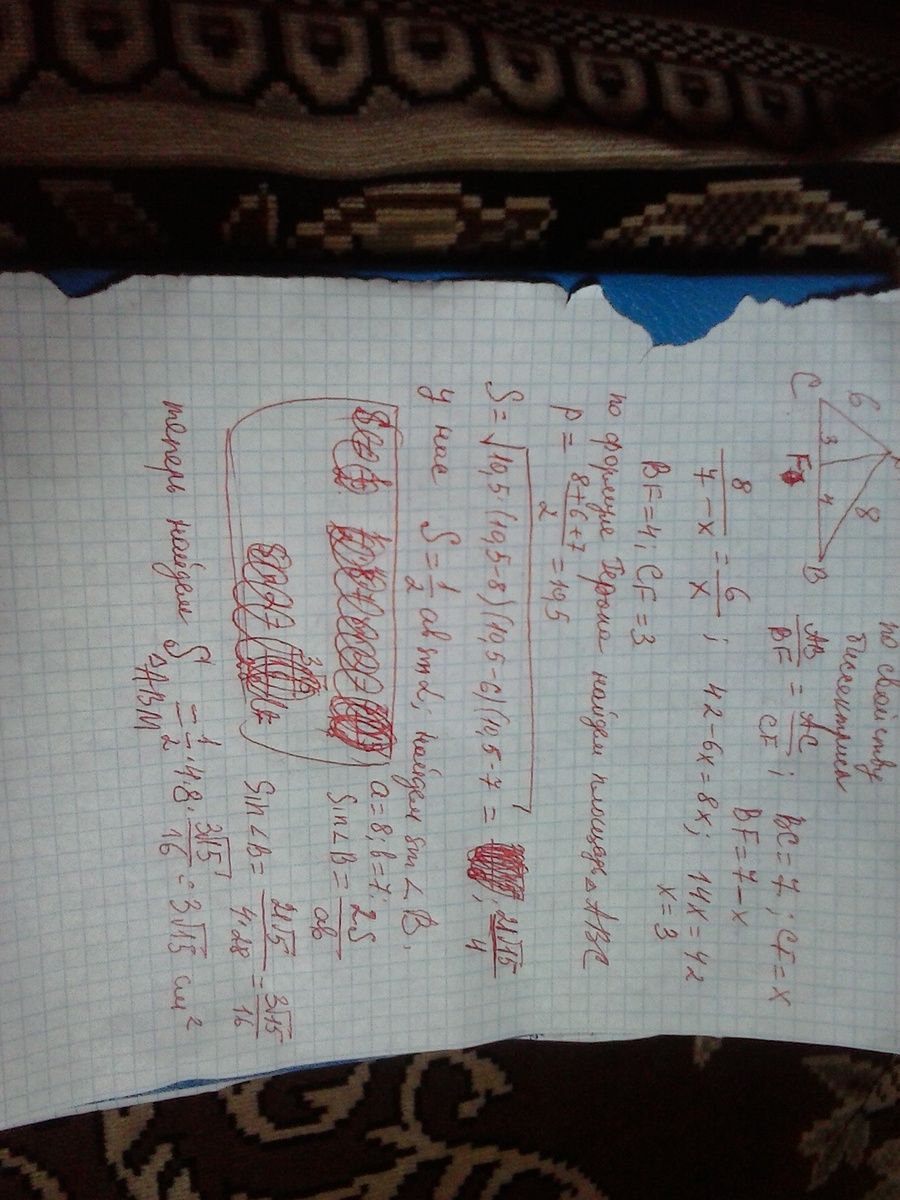 по свойству
биссектрисы
6
8
C 3 F 4 B
AB/BF = AC/CF; BC=7; CF=x
BF=7-x
8/(7-x) = 6/x; 42-6x=8x; 14x=42
x=3
BF=4; CF=3
по формуле Герона найдем площадь △ABC
p = (8+6+7)/2 = 10,5
S=√10,5·(10,5-8)(10,5-6)(10,5-7 = 21√15/4
У нас S=1/2 ab sin∠; найдем sin∠B,
a=8; b=7.
Sin∠B= 2S/ab
Sin∠B= 21√15/4·28 = 3√15/16
теперь найдем S△ABM = 1/2·4·8·3√15/16 = 3√15 см²